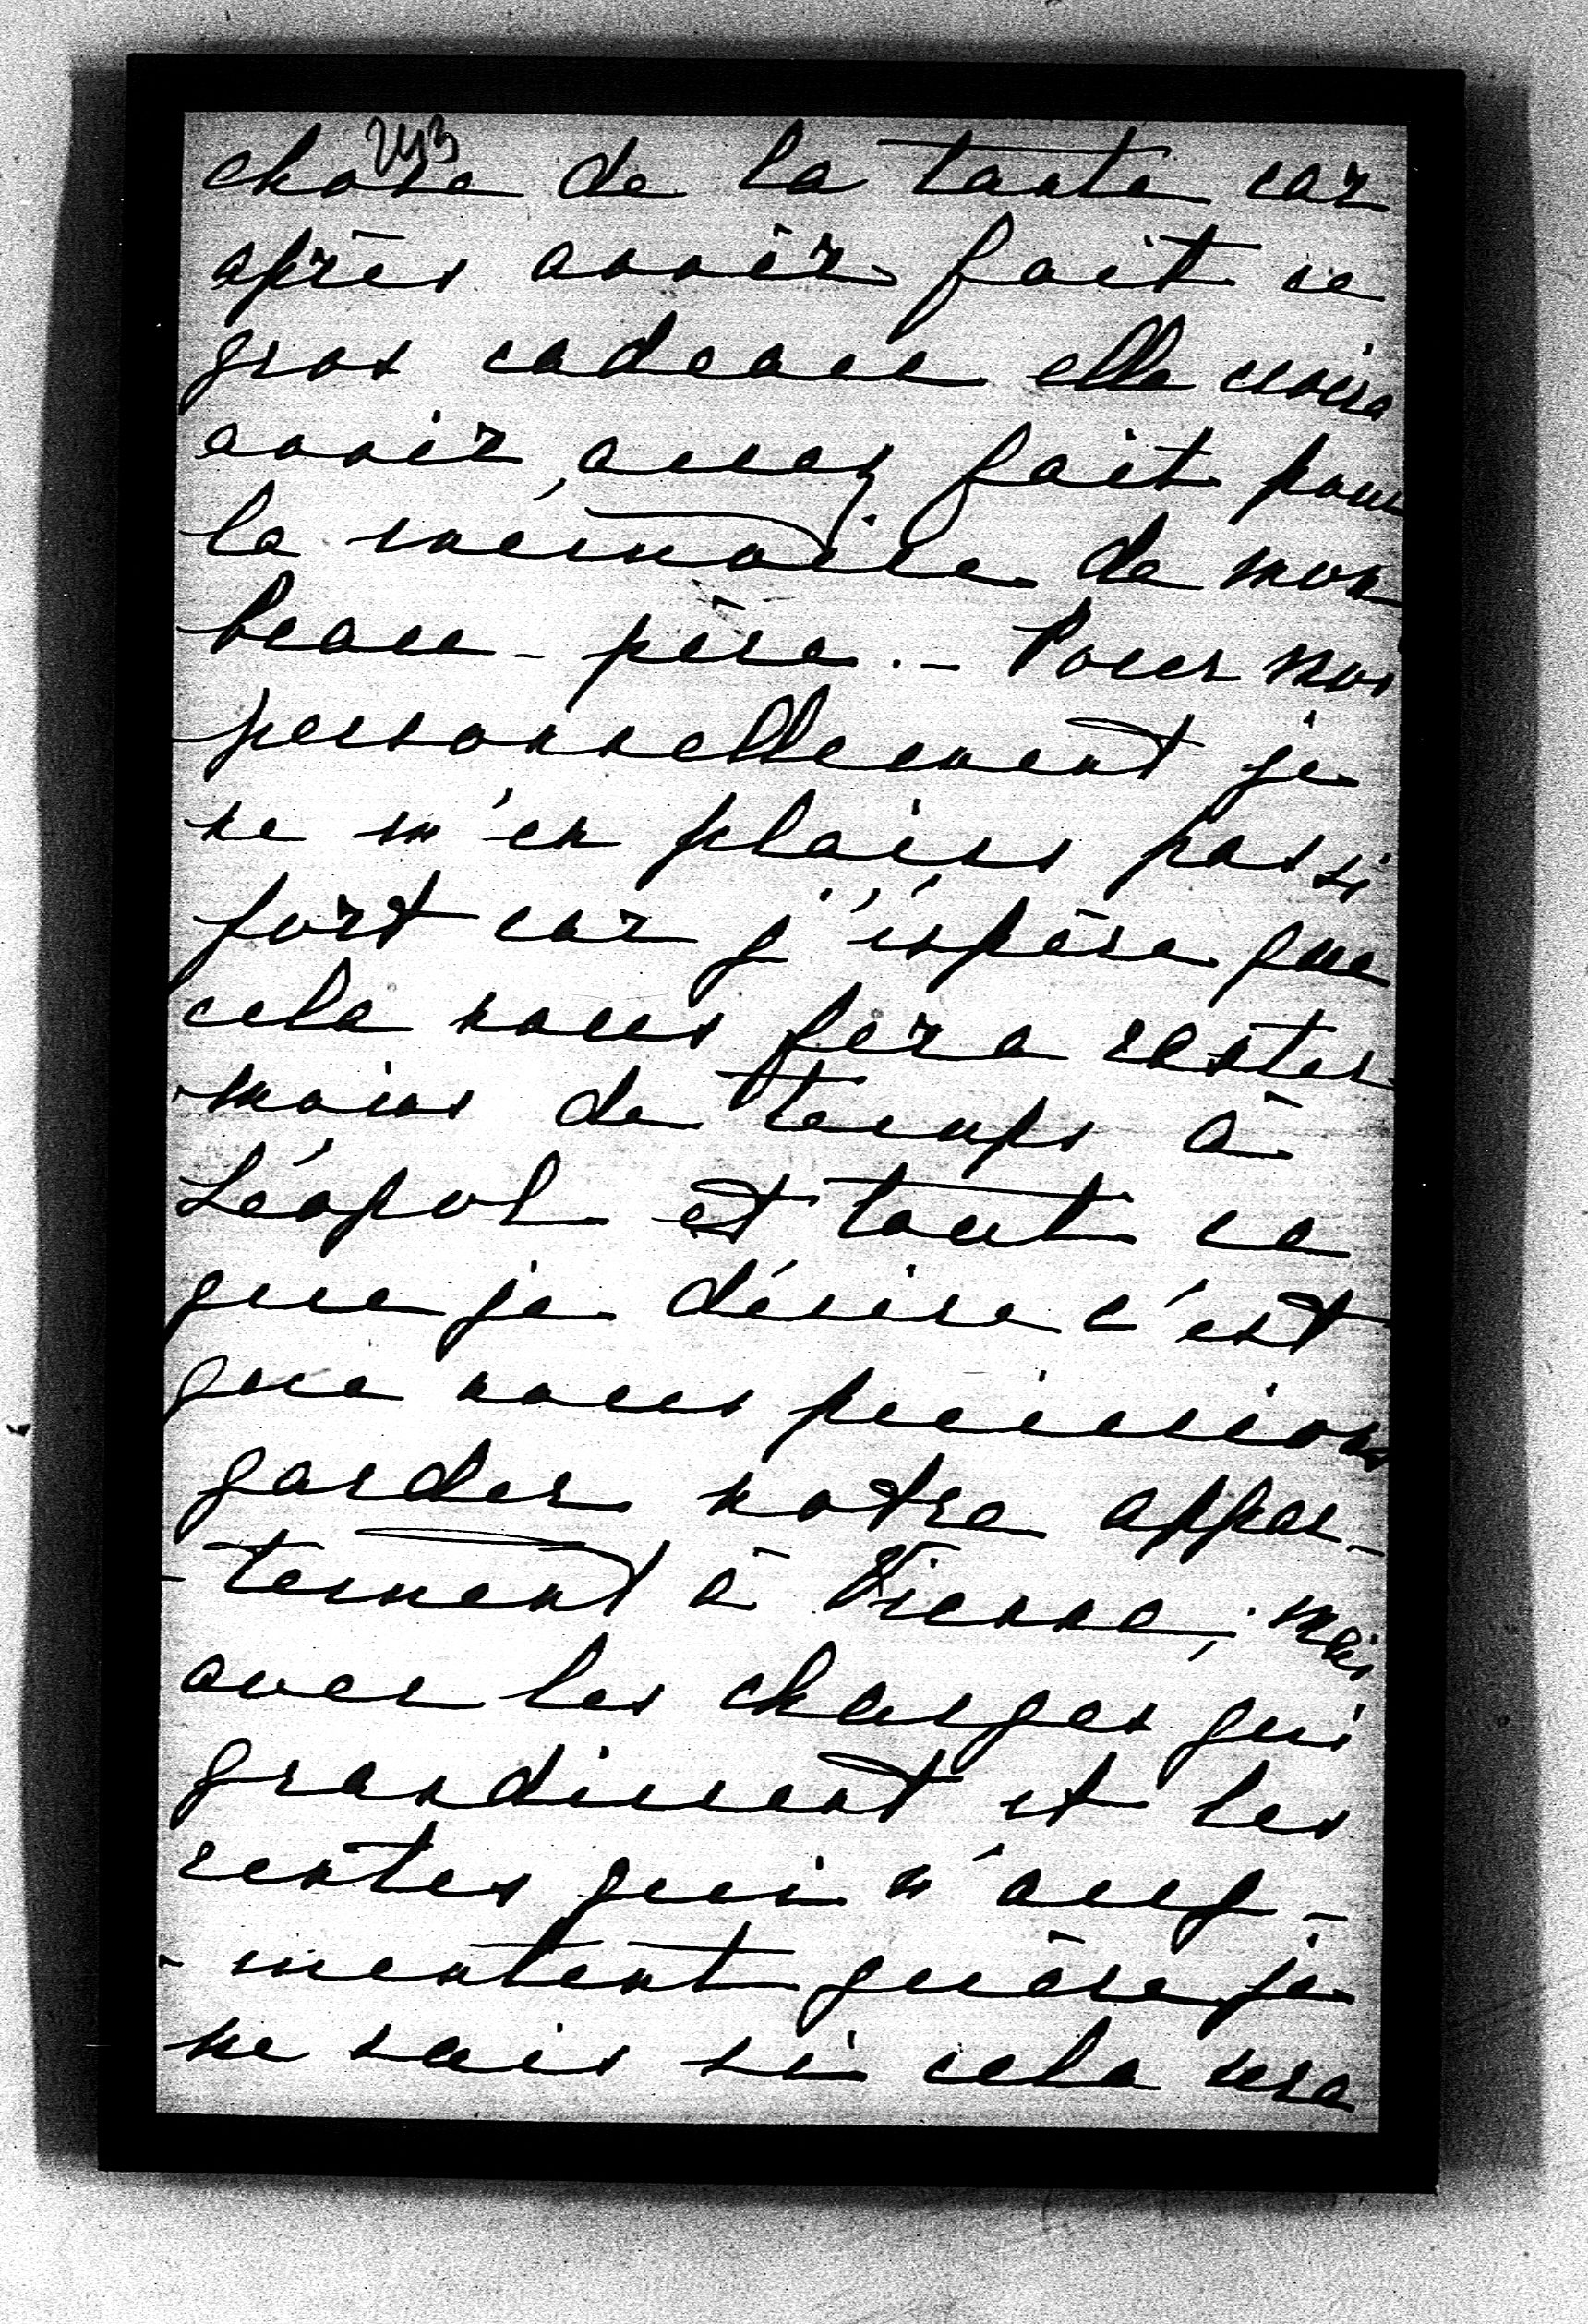 243
chose de la tante car
après avoir fait ce
gros cadeau elle croira
avoir assez fait pour
la mémoire de mon
beau-père. — Pour moi
personnellement je
ne m'en plains pas si
fort car j'espère que
cela nous fera rester
moins de temps à
Léopol et tout ce
que je désire c'est
que nous puissions
garder notre appar-
-tement à Vienne, mais
avec les charges qui
grandissent et les
rentes qui n'aug-
-mentent guère je
ne sais si cela sera